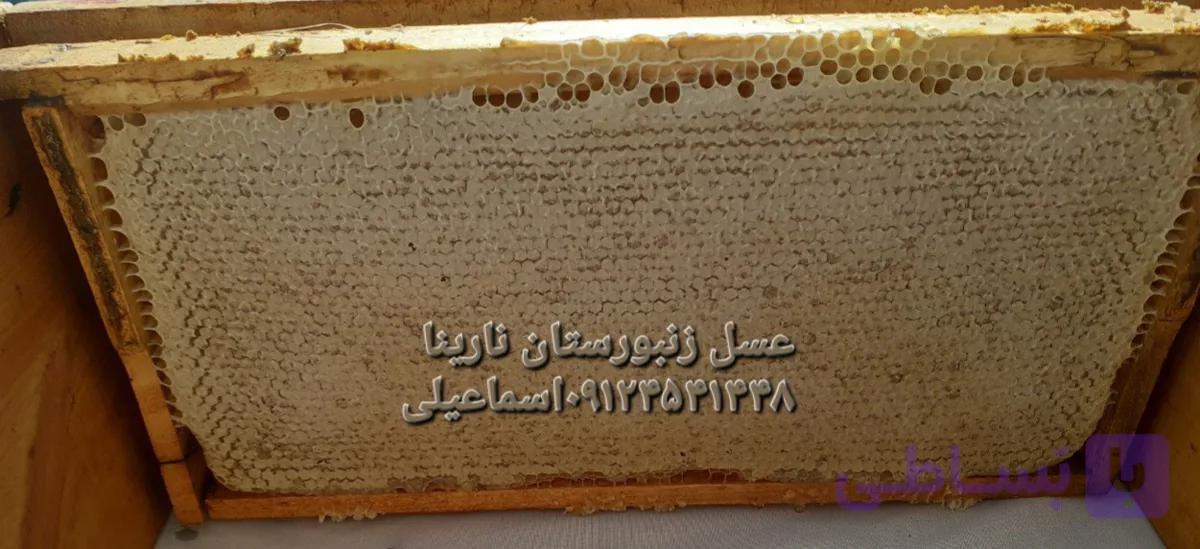 عسل زنبورستان نارینا
۰۹۱۲۴۵۴۱۴۴۸اسماعیلی
با بساطی